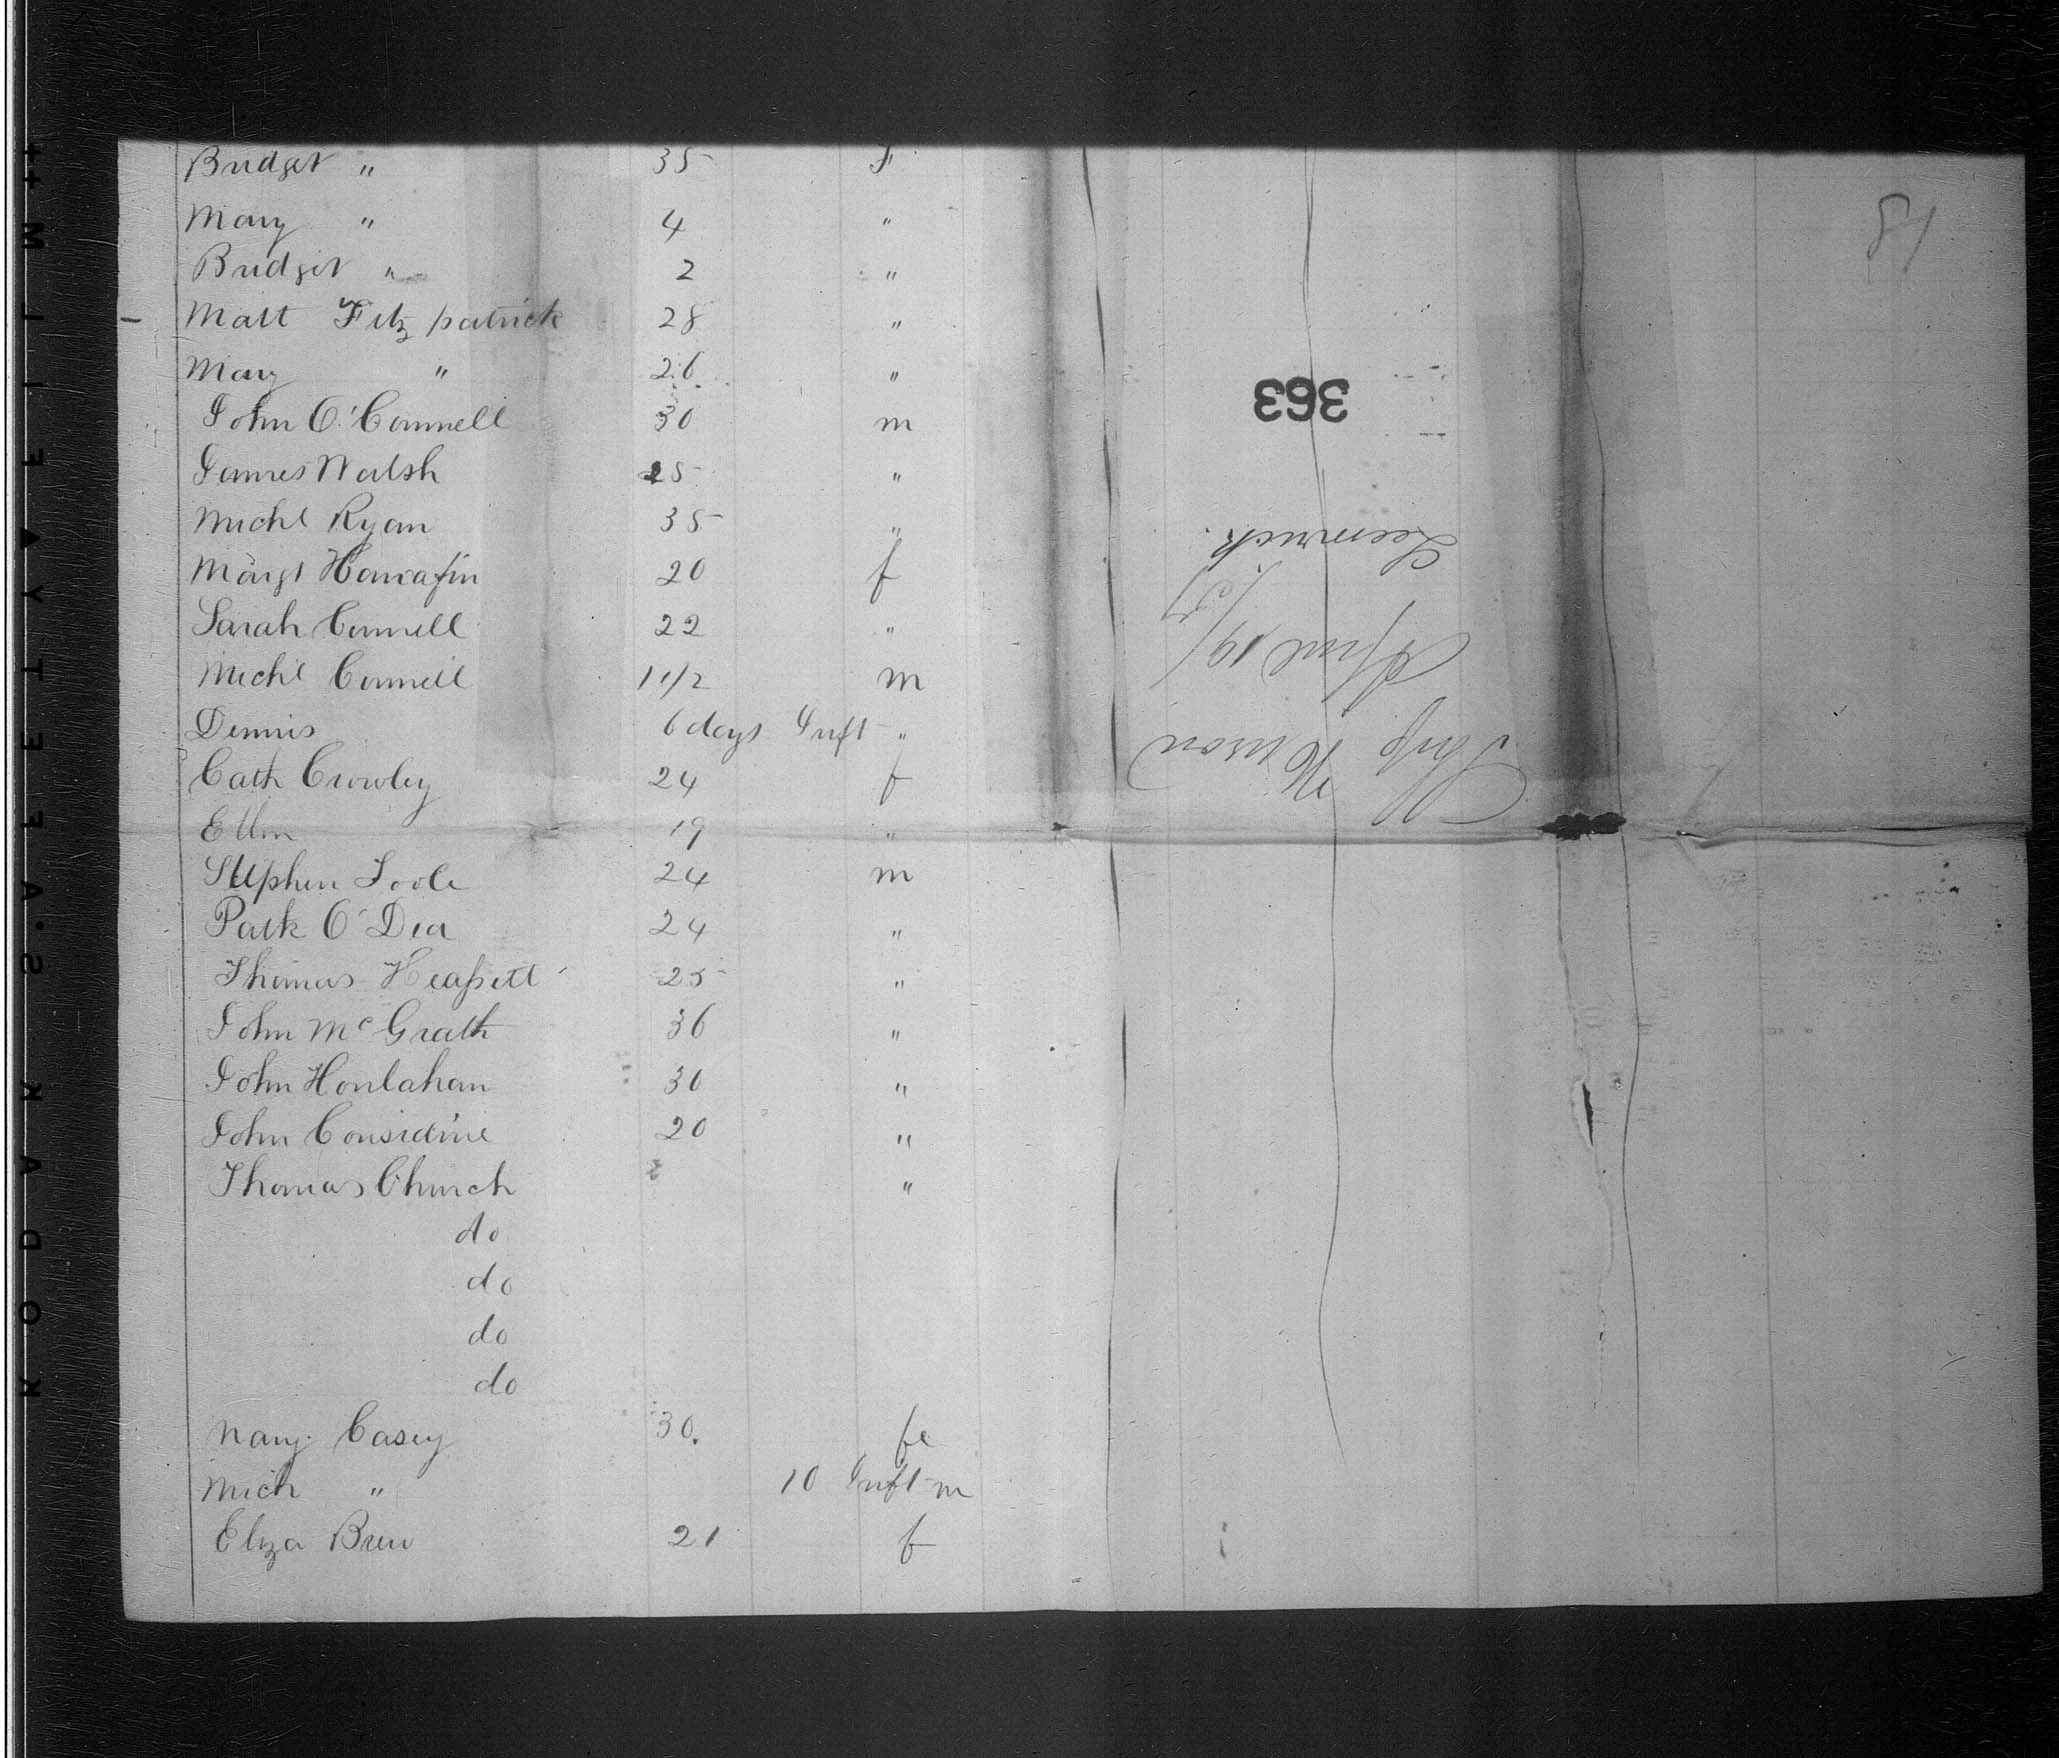 Bridget " 35 F
Mary " 4 "
Bridget " 2 "
Matt Fitzpatrick 28 "
Mary " 26 "
John O'Connell 30 m
James Walsh 25 "
Michl Ryan 35 "
Margt Hanrafin 20 f
Sarah Connell 22 "
Michl Connell 1 1/2 m
Dennis 6 days Inft "
Cath Crowley 24 f
Ellen 19 "
Stephen Toole 24 m
Patk O'Dea 24 "
Thomas Heassett 25 "
John McGrath 36 "
John Honlahan 30 "
John Considine 20 "
Thomas Church "
do
do
do
do
Mary Casey 30. fe
Mich " 10 Inft m
Eliza Brew 21 f
81
363
Ship
April 19/51
Limerick.
KODAK·SAFETY▲FILM